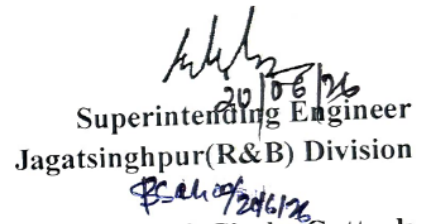 20/06/26
Superintending Engineer
Jagatsinghpur(R&B) Division
20/6/26